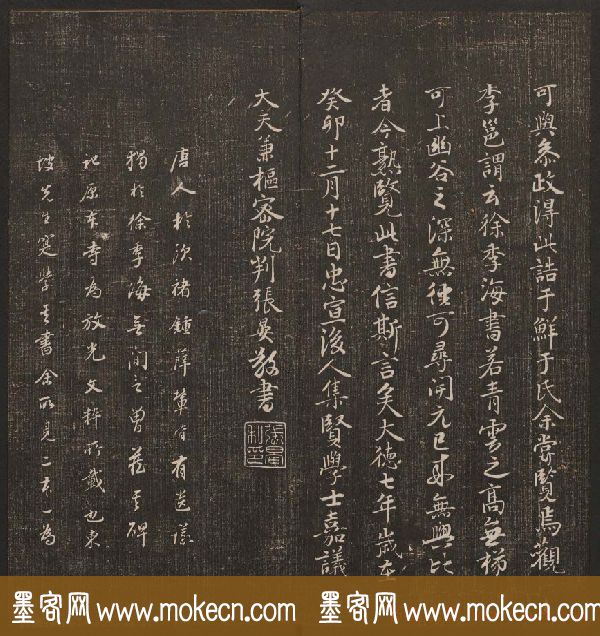 可與參政得此誥于鮮于氏余嘗覽焉觀
李邕謂云徐季海書若青雲之高無梯
可上幽谷之深無徑可尋開元已好無與比
者今熟覽此書信斯言矣大德七年歲在
癸卯十二月十七日忠宣後人集賢學士嘉議
大夫兼樞密院判張晏敬書
唐人於歐褚鍾薛輩皆有遺
獨於徐季海無聞之曾藏其碑
記原本寺為放光文粹所載也東
坡先生實學其書余所見二本一為
墨客网 www.mokecn.com 墨客网 www.mokecn.com